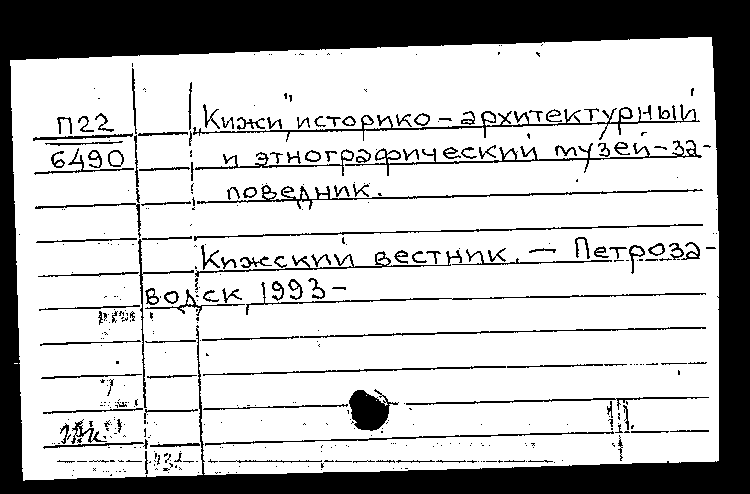 П22
6490
„Кижи", историко-архитектурный
и этнографический музей-за-
поведник.
Кижский вестник. — Петроза-
водск, 1993-